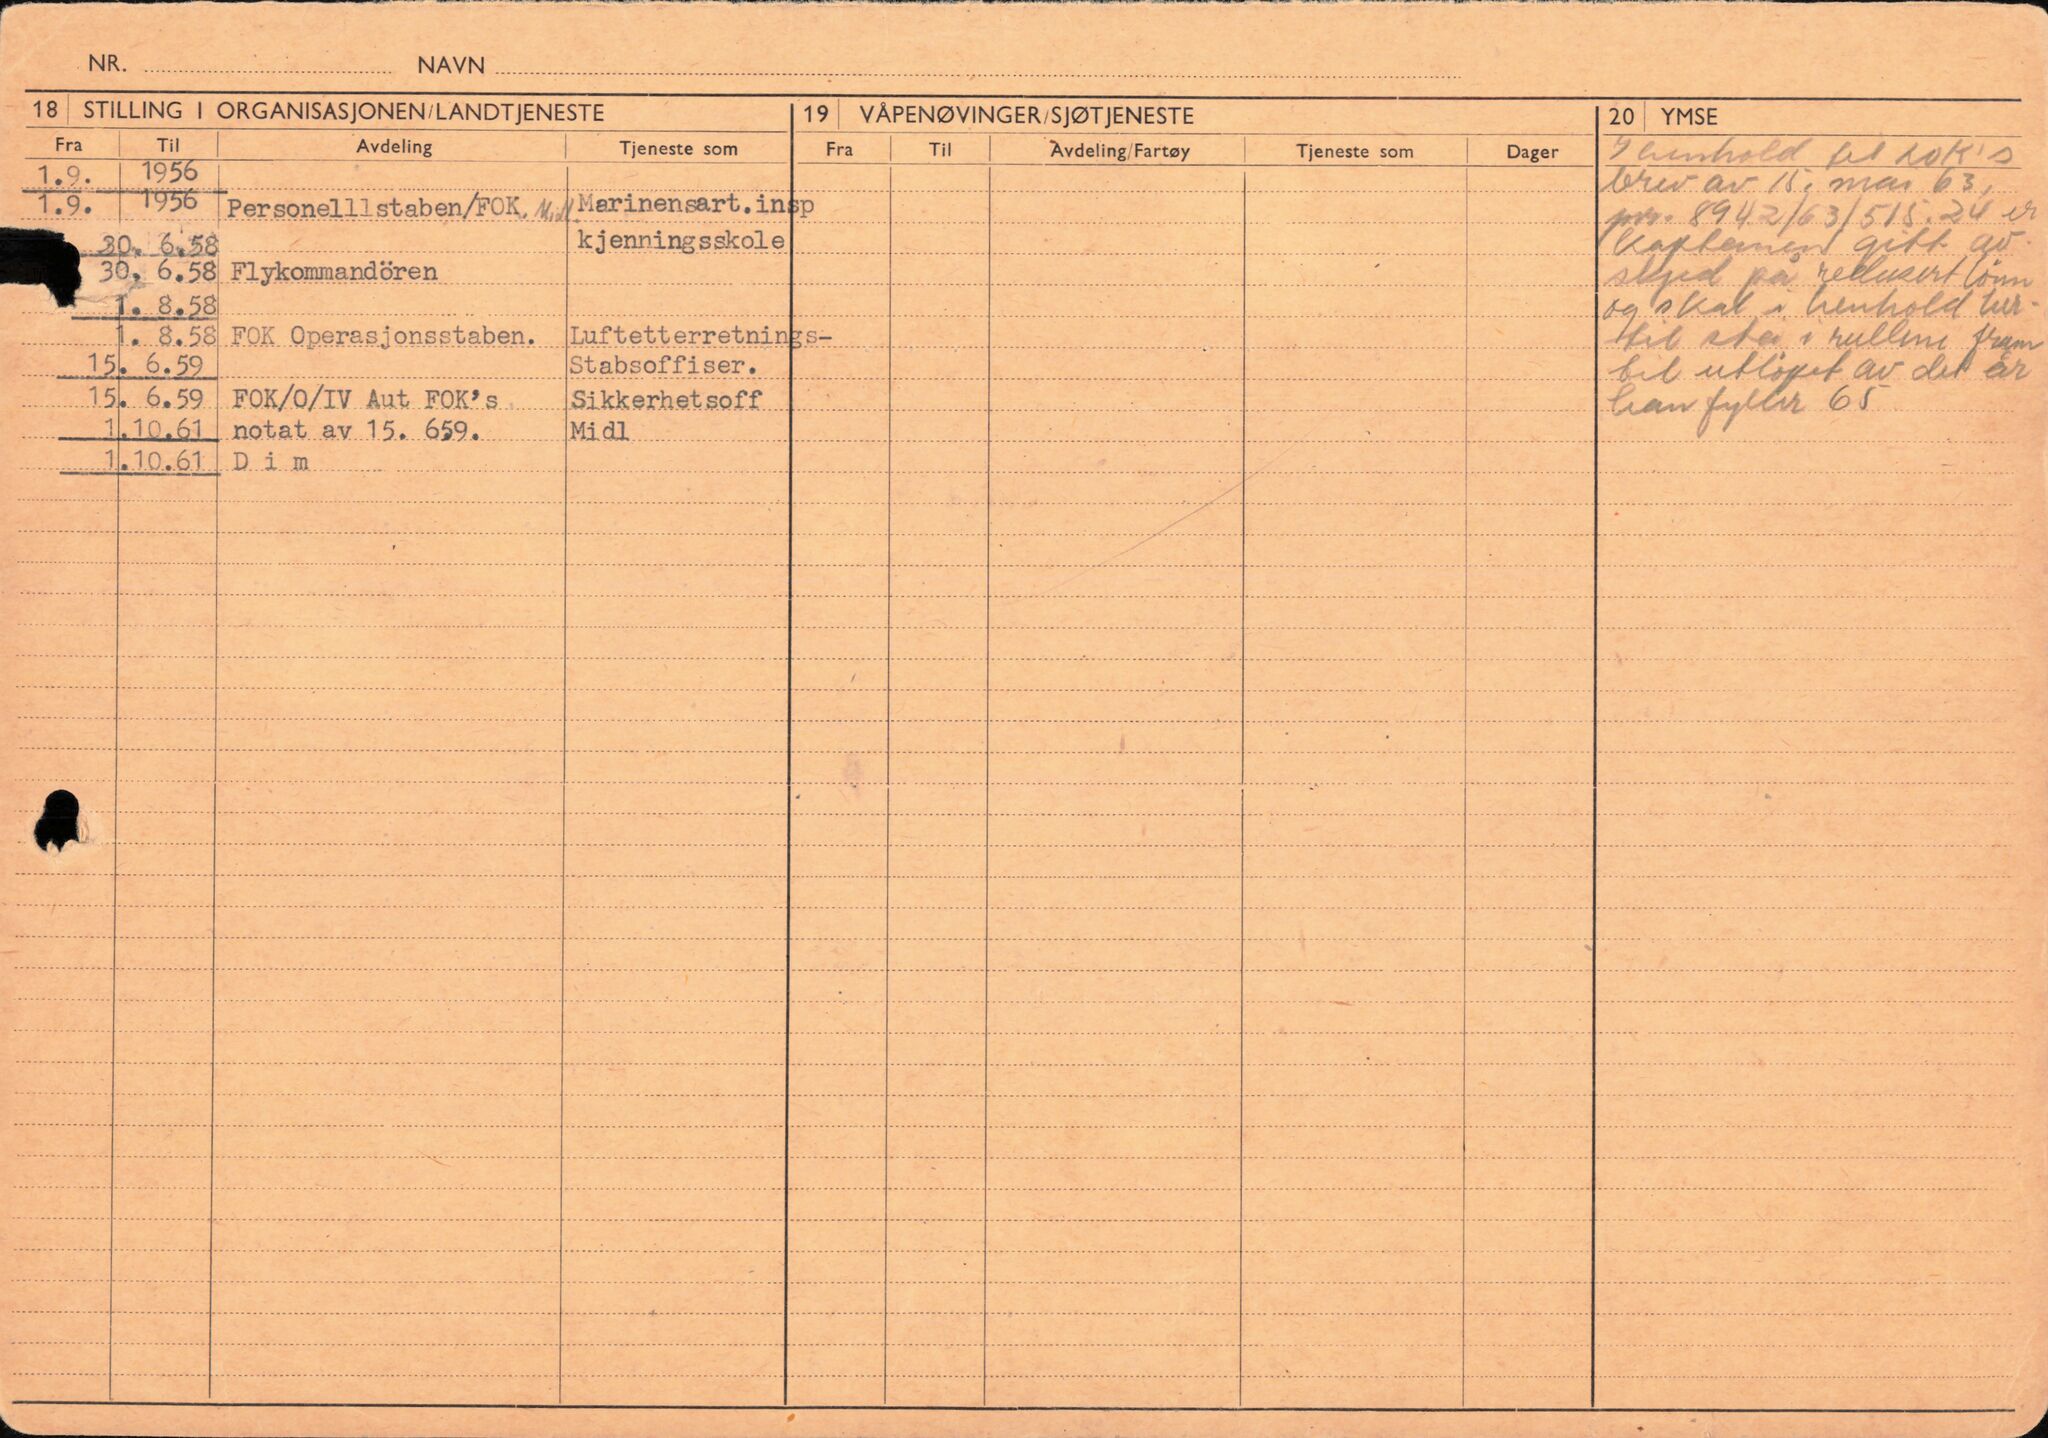 NR. NAVN
18 STILLING I ORGANISASJONEN/LANDTJENESTE
Fra Til Avdeling Tjeneste som
1.9. 1956
1.9. 1956 Personelllstaben/FOK Midl. Marinensart.insp
30. 6.58 kjenningsskole
30. 6.58 Flykommandören
1. 8.58
1. 8.58 FOK Operasjonsstaben. Luftetterretnings-
15. 6.59 Stabsoffiser.
15. 6.59 FOK/O/IV Aut FOK's Sikkerhetsoff
1.10.61 notat av 15. 659. Midl
1.10.61 D i m
19 VÅPENØVINGER/SJØTJENESTE
Fra Til Avdeling/Fartøy Tjeneste som Dager
20 YMSE
I henhold til LOK's
brev av 15. mai 63,
pr. 8942/63/515.24 er
Kapteinen gitt av-
skjed på redusert lönn
og skal i henhold her-
til stå i rullene fram
til utlöpet av det år
han fyller 65